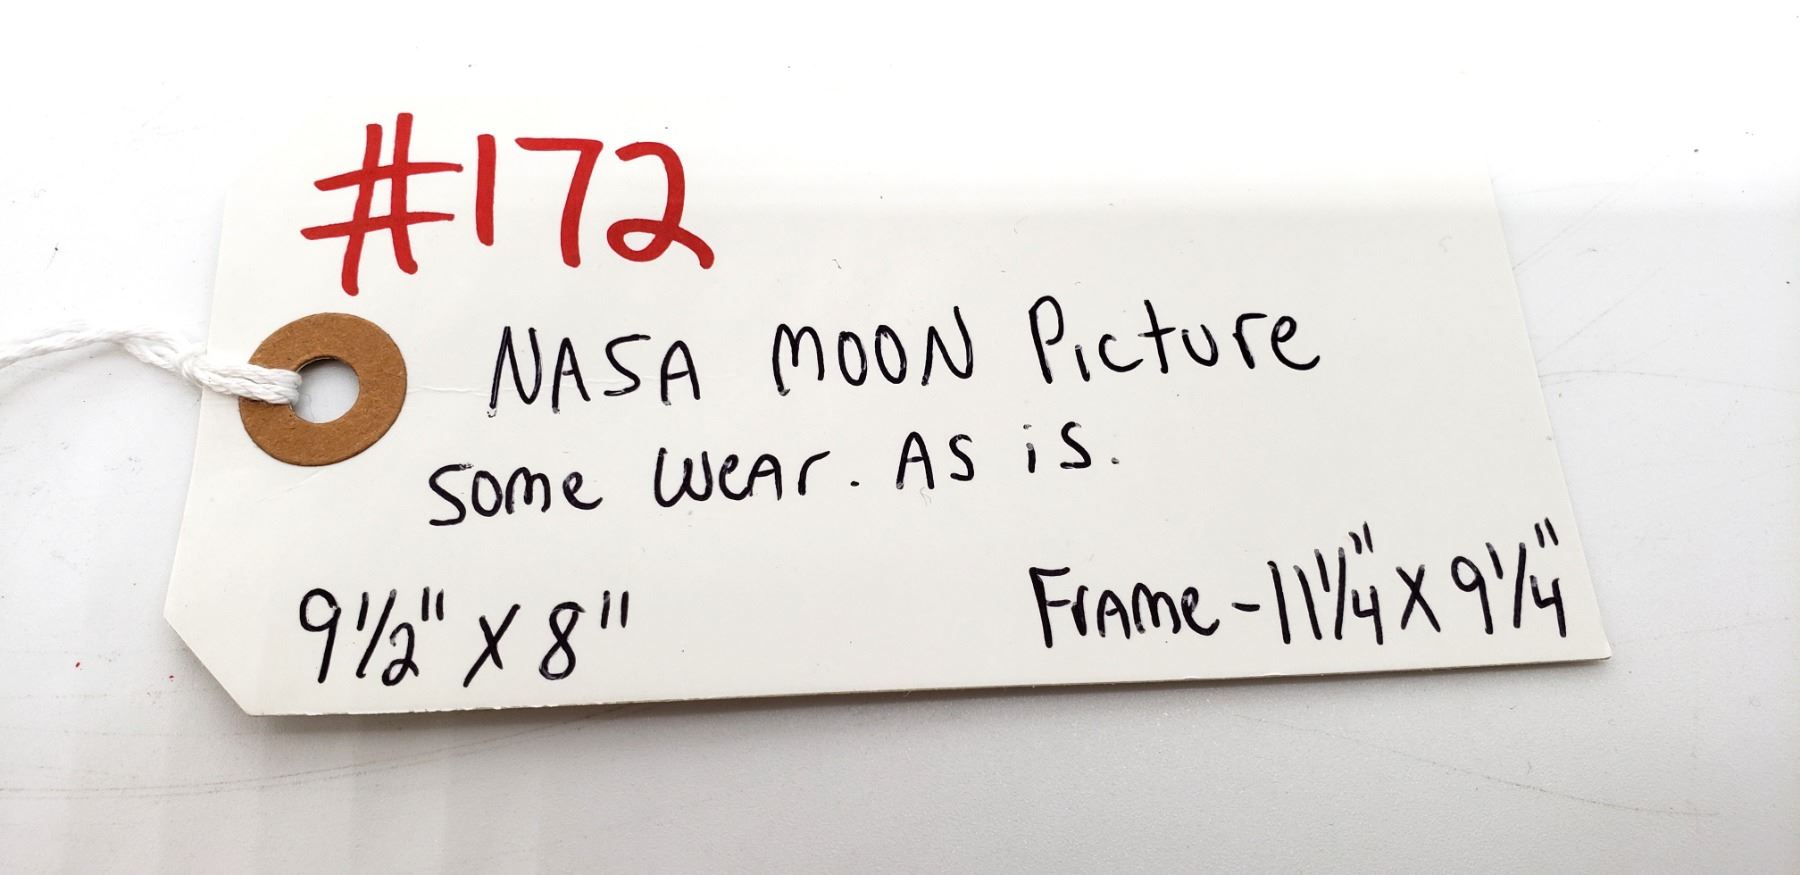 #172
NASA MOON Picture
some wear. As is.
9 1/2" x 8"
Frame - 11 1/4" x 9 1/4"